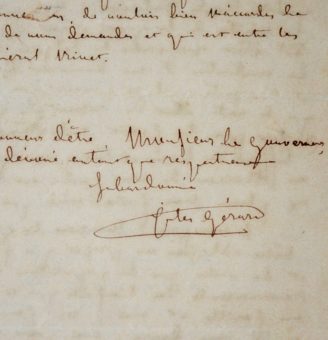 de vouloir bien m'accorder la
de vous demander et qui est entre les
néral Rivet.
onneur d'être, Monsieur le gouverneur,
dévoué autant que respectueux
subordonné
Jules Gérard